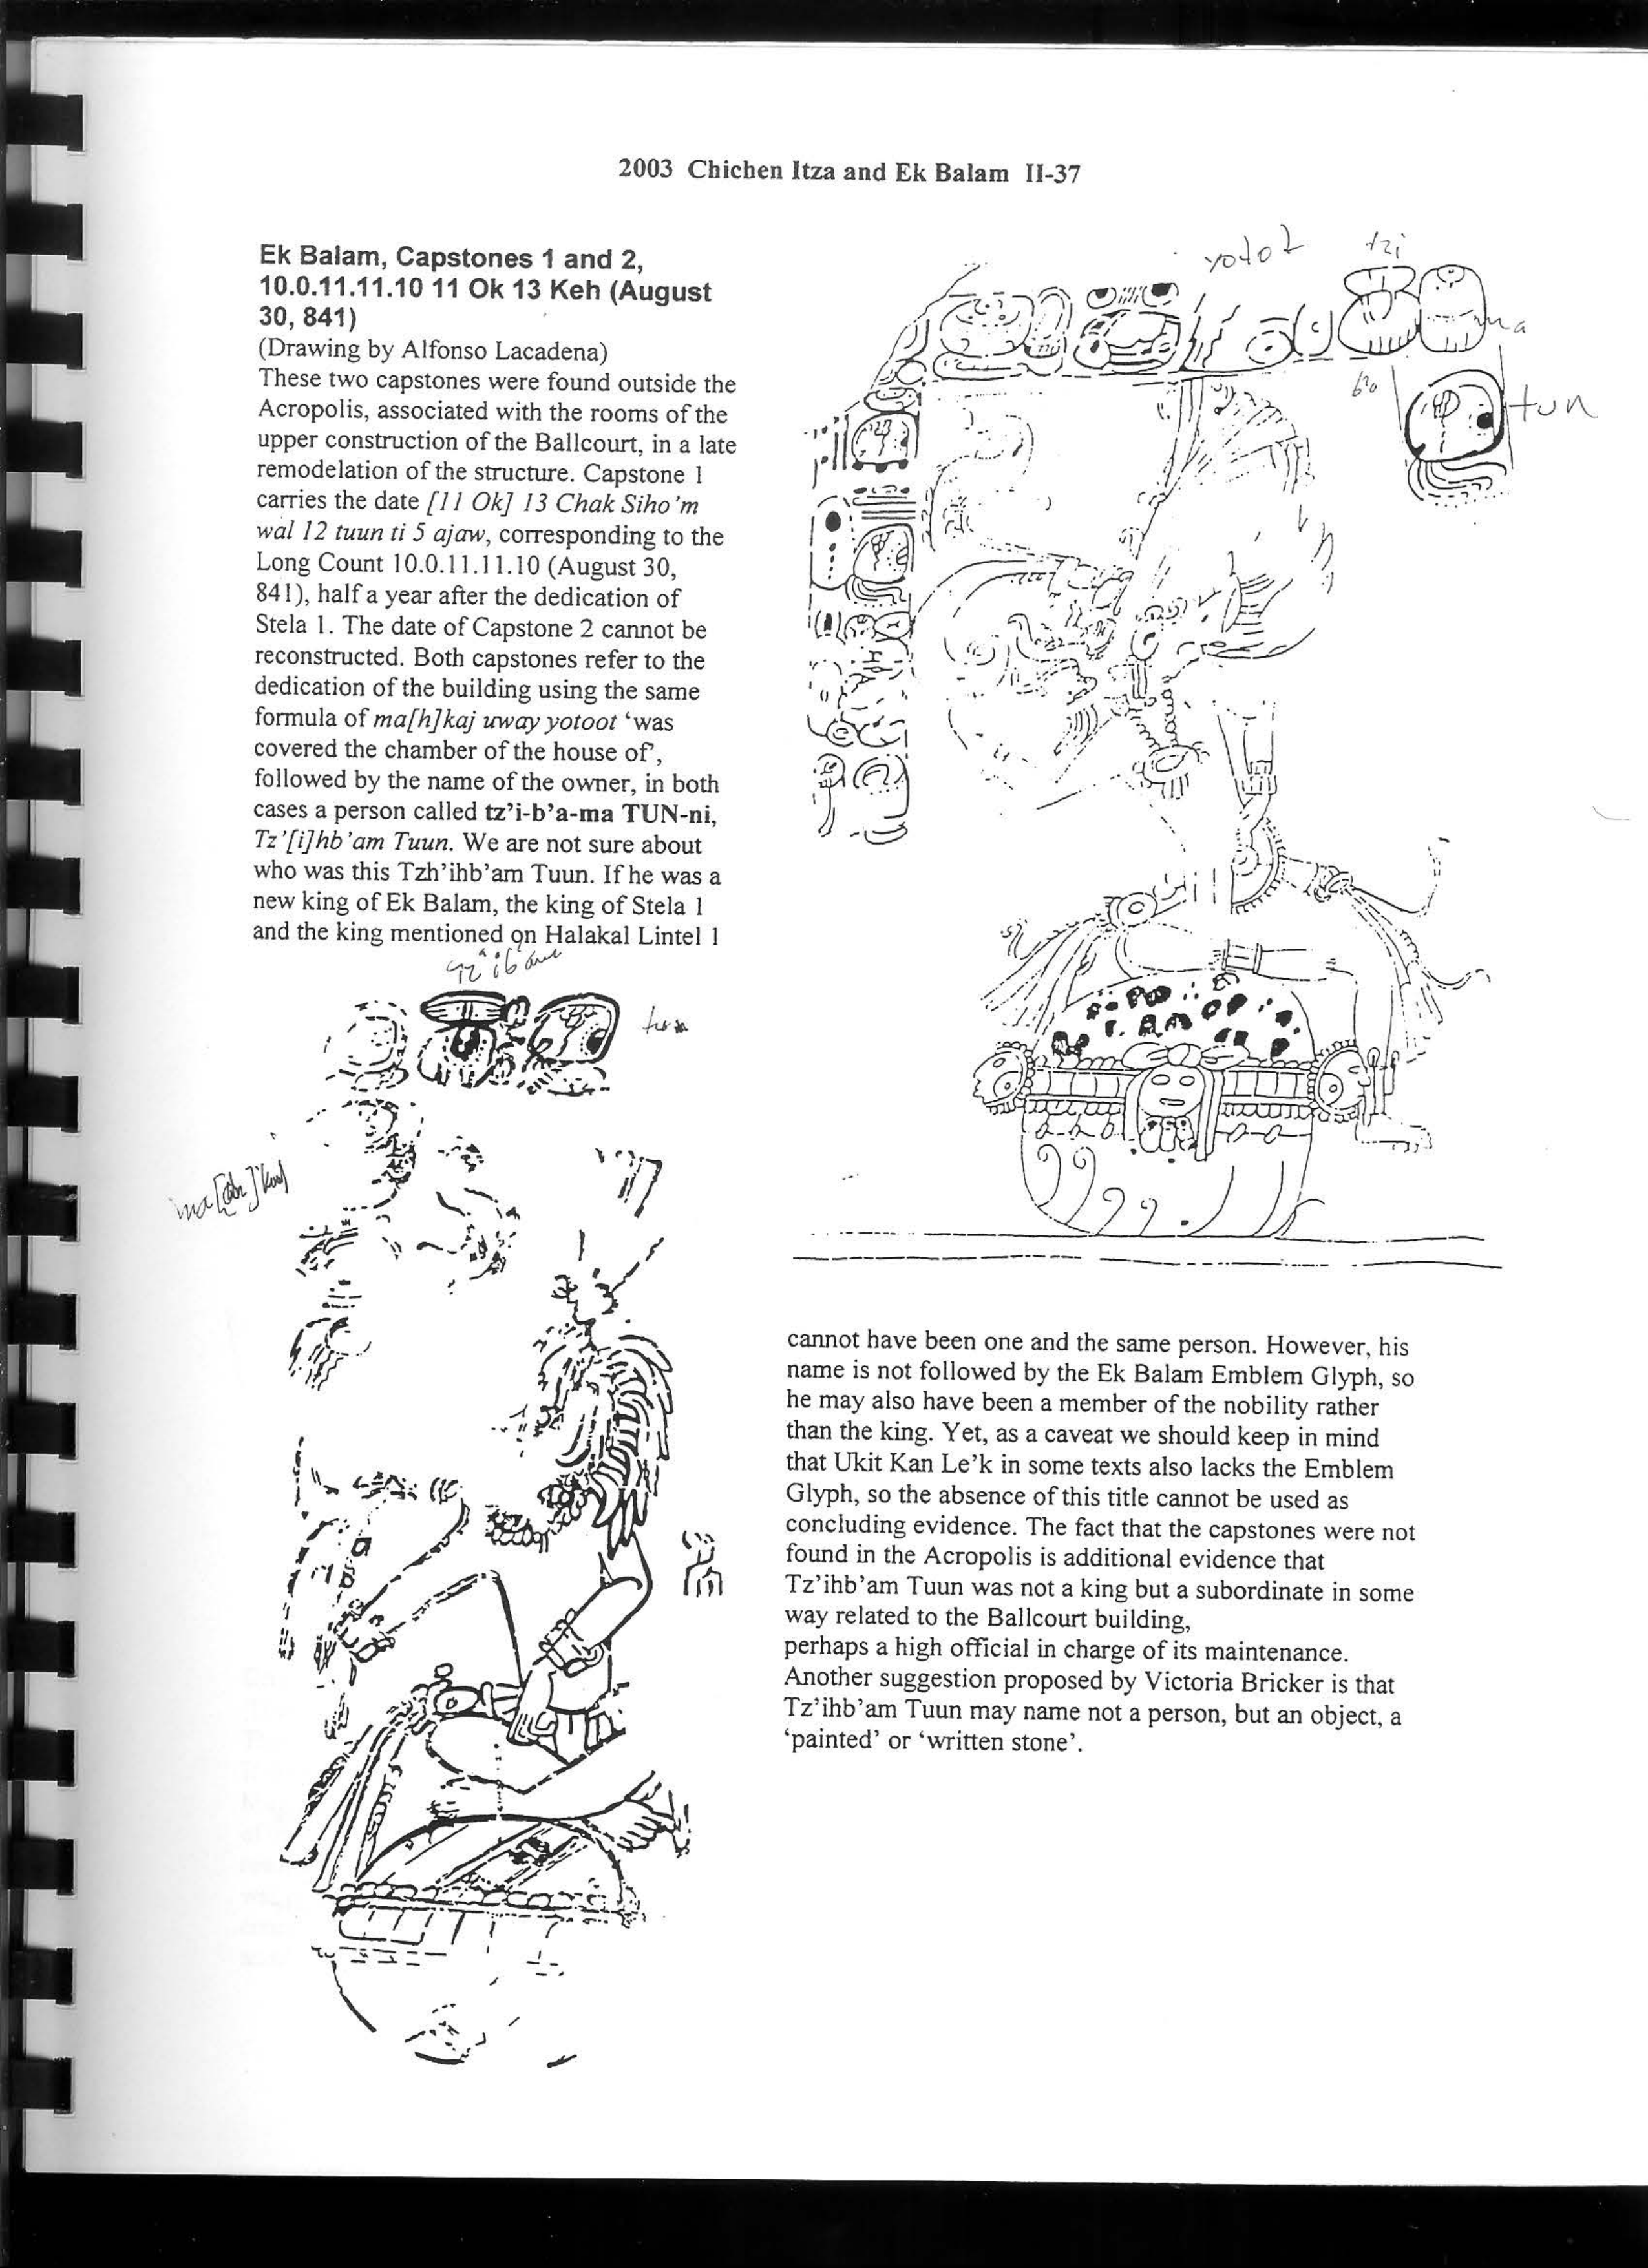 2003 Chichen Itza and Ek Balam II-37
Ek Balam, Capstones 1 and 2,
10.0.11.11.10 11 Ok 13 Keh (August
30, 841)
(Drawing by Alfonso Lacadena)
These two capstones were found outside the
Acropolis, associated with the rooms of the
upper construction of the Ballcourt, in a late
remodelation of the structure. Capstone 1
carries the date [11 Ok] 13 Chak Siho'm
wal 12 tuun ti 5 ajaw, corresponding to the
Long Count 10.0.11.11.10 (August 30,
841), half a year after the dedication of
Stela 1. The date of Capstone 2 cannot be
reconstructed. Both capstones refer to the
dedication of the building using the same
formula of ma[h]kaj uway yotoot 'was
covered the chamber of the house of',
followed by the name of the owner, in both
cases a person called tz'i-b'a-ma TUN-ni,
Tz'[i]hb'am Tuun. We are not sure about
who was this Tzh'ihb'am Tuun. If he was a
new king of Ek Balam, the king of Stela 1
and the king mentioned on Halakal Lintel 1
tz'ibam
tun
yotot
tzi
ma
ba
tun
cannot have been one and the same person. However, his
name is not followed by the Ek Balam Emblem Glyph, so
he may also have been a member of the nobility rather
than the king. Yet, as a caveat we should keep in mind
that Ukit Kan Le'k in some texts also lacks the Emblem
Glyph, so the absence of this title cannot be used as
concluding evidence. The fact that the capstones were not
found in the Acropolis is additional evidence that
Tz'ihb'am Tuun was not a king but a subordinate in some
way related to the Ballcourt building,
perhaps a high official in charge of its maintenance.
Another suggestion proposed by Victoria Bricker is that
Tz'ihb'am Tuun may name not a person, but an object, a
'painted' or 'written stone'.